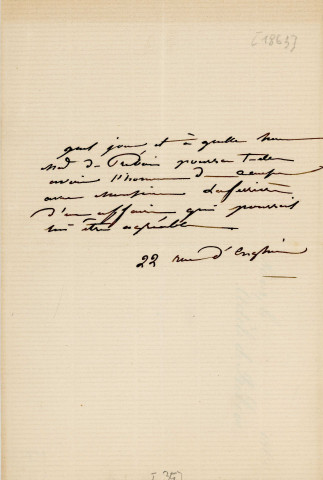 [1863]
quel jour et à quelle heure
Md de pourra t-elle
avoir l'honneur de causer
avec Monsieur Laferrière
d'un affaire qui pourrait
lui être agréable
22 rue d'Enghien
[35]